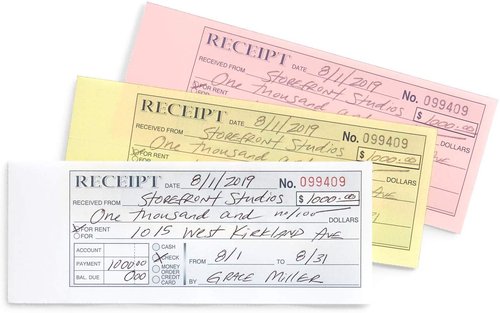 RECEIPT DATE 8/1/2019 No. 099409
RECEIVED FROM Storefront Studios $1000.00
One thousand and
FOR RENT
RECEIPT DATE 8/1/2019 No. 099409
RECEIVED FROM Storefront Studios $1000.00
One thousand and
FOR RENT
RECEIPT DATE 8/1/2019 No. 099409
RECEIVED FROM Storefront Studios $1000.00
One thousand and no/100 DOLLARS
FOR RENT
FOR 1015 West Kirkland Ave
ACCOUNT CASH
PAYMENT 1000 00 CHECK FROM 8/1 TO 8/31
MONEY ORDER
BAL. DUE 000 CREDIT CARD BY Grace Miller